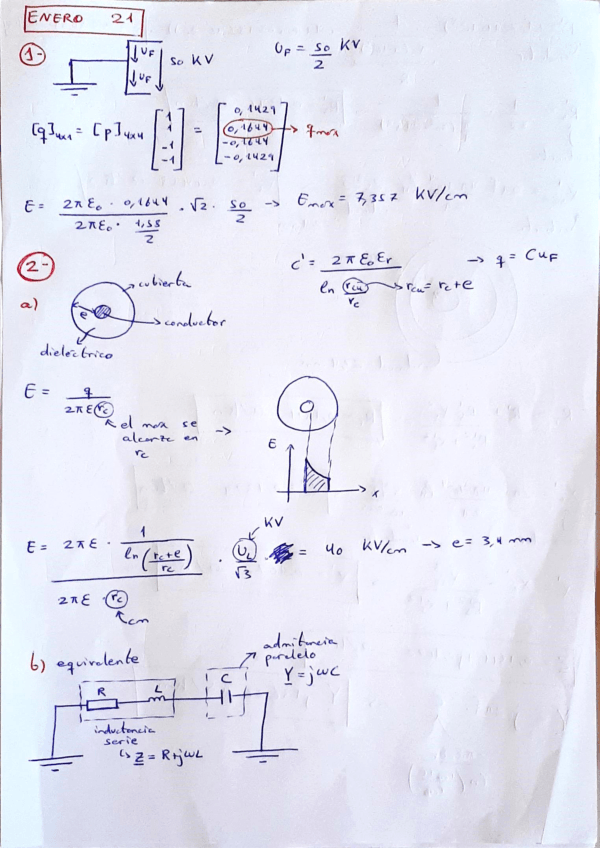 ENERO 21
1-
U_F
U_F
50 KV
U_F = 50/2 KV
[q]4x1 = [P]4x4 [1 1 -1 -1] = [0,1429 0,1644 -0,1644 -0,1429] → q max
E = (2πε₀ · 0,1644)/(2πε₀ · 1,55/2) · √2 · 50/2 → E max = 7,357 KV/cm
2-
C' = 2πε₀εr / ln (rcu/rc) → q = CU_F
rcu = rc+e
a)
cubierta
e
conductor
dieléctrico
E = q/(2πε rc)
el max se
alcanza en
rc
E
x
KV
E = (2πε · 1/ln((rc+e)/rc))/(2πε · rc) · U_L/√3 · = 40 KV/cm → e = 3,4 mm
cm
b) equivalente
admitancia
paralelo
Y = jωC
R
L
C
inductancia
serie
↳ Z = R+jωL